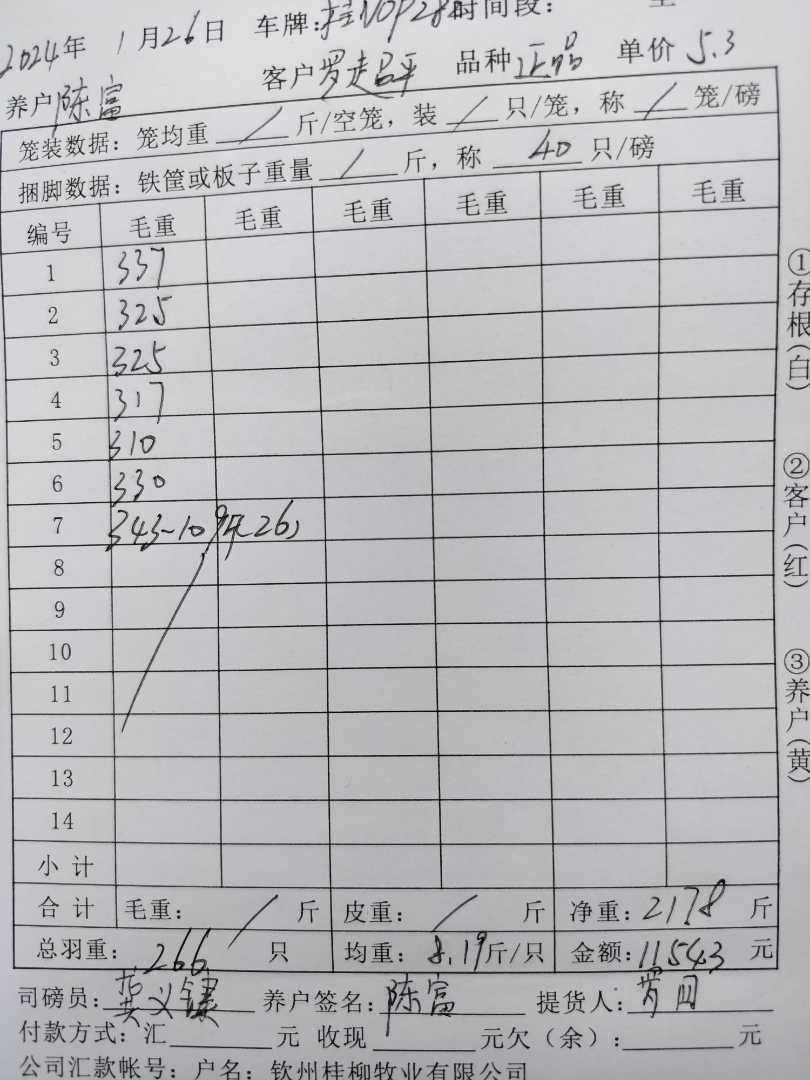 2024年 1月26日 车牌: 时间段:
养户 陈富 客户 罗 品种 正品 单价 5.3
笼装数据: 笼均重 / 斤/空笼, 装 / 只/笼, 称 / 笼/磅
捆脚数据: 铁筐或板子重量 / 斤, 称 40 只/磅
编号 毛重 毛重 毛重 毛重 毛重 毛重
1 337
2 325
3 325
4 317
5 310
6 330
7 343-109斤 26只
8
9
10
11
12
13
14
小计
合计 毛重: / 斤 皮重: / 斤 净重: 2178 斤
总羽重: 266 只 均重: 8.19斤/只 金额: 11543 元
司磅员: 养户签名: 陈富 提货人:
付款方式: 汇 元 收现 元欠(余): 元
公司汇款帐号: 户名: 钦州桂柳牧业有限公司
①存根(白)
②客户(红)
③养户(黄)